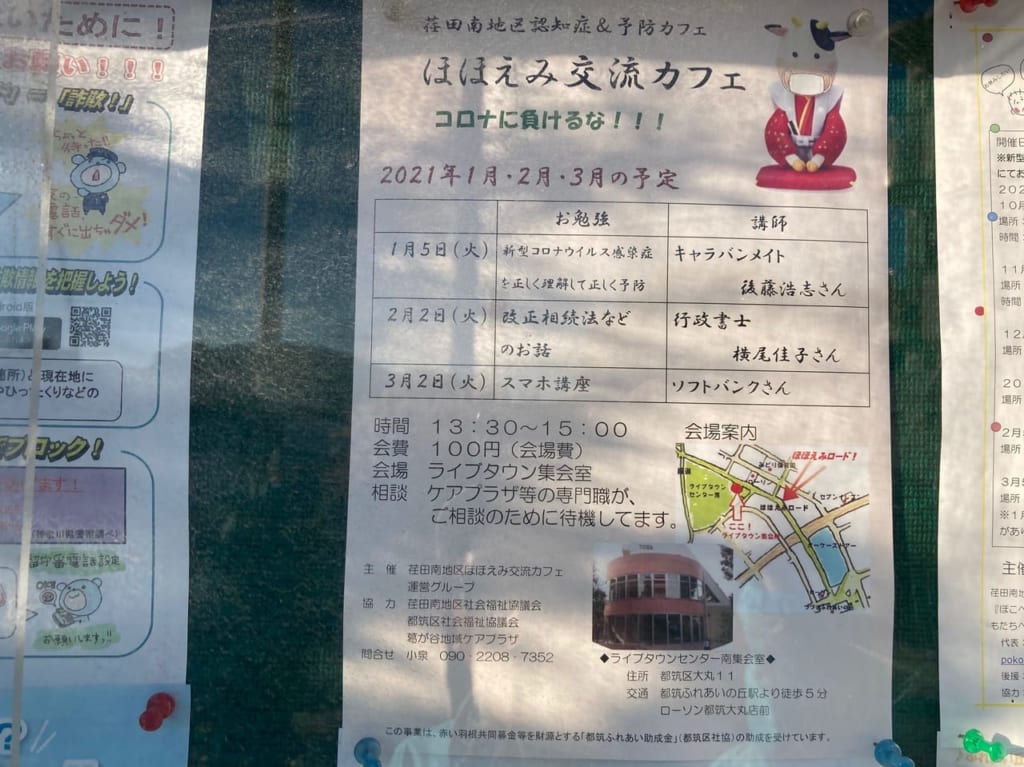 いために！
！！！
「詐欺！」
ちょっと
待った!!
電話、
すぐに出ちゃダメ！
情報を把握しよう！
droid版
Google Play
箇所)と現在地に
やひったくりなどの
ブロック！
ます！
（神奈川県警察調べ）
留守番電話設定
お願いします!!
荏田南地区認知症＆予防カフェ
ほほえみ交流カフェ
コロナに負けるな！！！
2021年1月・2月・3月の予定
お勉強 講師
1月5日(火) 新型コロナウイルス感染症を正しく理解して正しく予防 キャラバンメイト 後藤浩志さん
2月2日(火) 改正相続法などのお話 行政書士 横尾佳子さん
3月2日(火) スマホ講座 ソフトバンクさん
時間 13：30～15：00
会費 100円（会場費）
会場 ライブタウン集会室
相談 ケアプラザ等の専門職が、
ご相談のために待機してます。
会場案内
ほほえみロード！
みどり保育園
ローソン
ライブタウン
センター南
セブンイレブン
ほほえみロード
ここ！
ライブタウン集会所
主 催 荏田南地区ほほえみ交流カフェ
運営グループ
協 力 荏田南地区社会福祉協議会
都筑区社会福祉協議会
葛が谷地域ケアプラザ
問合せ 小泉 090-2208-7352
◆ライブタウンセンター南集会室◆
住所 都筑区大丸11
交通 都筑ふれあいの丘駅より徒歩5分
ローソン都筑大丸店前
この事業は、赤い羽根共同募金等を財源とする「都筑ふれあい助成金」（都筑区社協）の助成を受けています。
開催日
※新型
にてお
202
10月
場所
時間：
11月
場所
時間
12
場所
20
場所
2月
場所
3月
場所
※1月
があ
主催
荏田南地
『ぽこペ
もだちへ
代表：
poko
後援：
協力：